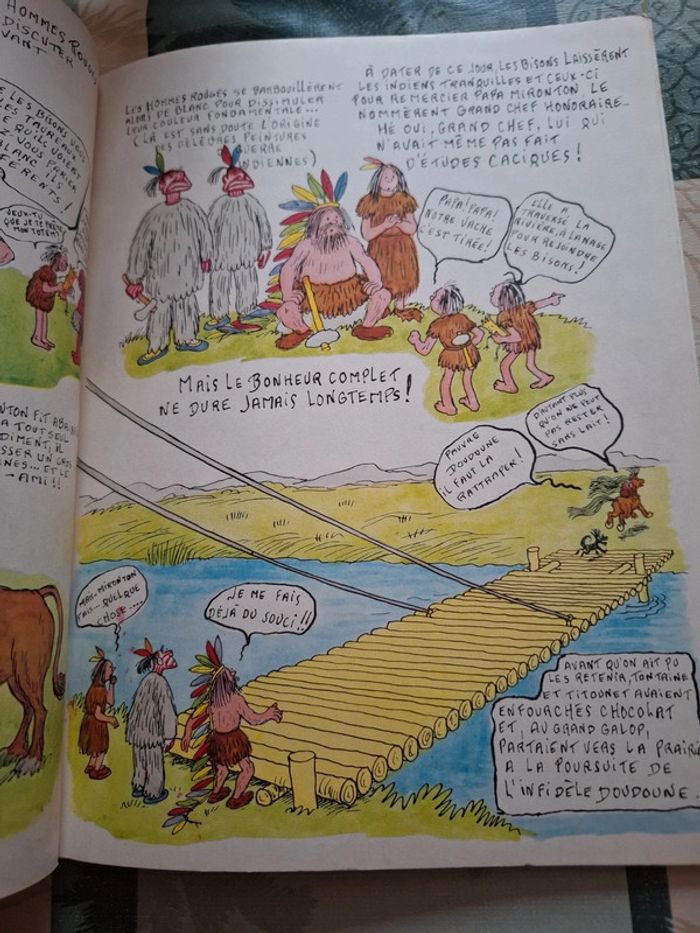 HOMMES ROUGES
DISCUTER
VANT
LES BISONS VOUS
BLANC ILS
FÉRENTS!
VEUX-TU
QUE JE TE PRÊTE
MON TOTEM?
TOUT SEUL
DIMENT, IL
SSER UN GROS
NES... ET LE
- AMI!!
LES HOMMES ROUGES SE BARBOUILLÈRENT
ALORS DE BLANC POUR DISSIMULER
LEUR COULEUR FONDAMENTALE...
(LÀ EST SANS DOUTE L'ORIGINE
DES CÉLÈBRES PEINTURES
GUERRE
INDIENNES)
À DATER DE CE JOUR, LES BISONS LAISSÈRENT
LES INDIENS TRANQUILLES ET CEUX-CI
POUR REMERCIER PAPA MIRONTON, LE
NOMMÈRENT GRAND CHEF HONORAIRE...
HÉ OUI, GRAND CHEF, LUI QUI
N'AVAIT MÊME PAS FAIT
D'ÉTUDES CACIQUES!
PAPA! PAPA!
NOTRE VACHE
S'EST TIRÉE!
ELLE A
TRAVERSÉ LA
RIVIÈRE, À LA NAGE
POUR REJOINDRE
LES BISONS!
MAIS LE BONHEUR COMPLET
NE DURE JAMAIS LONGTEMPS!
PAUVRE
DOUDOUNE
IL FAUT LA
RATTRAPER!
D'AUTANT PLUS
QU'ON NE PEUT
PAS RESTER
SANS LAIT!
MAIS MIRONTON
FAIS... QUELQUE
CHOSE....
JE ME FAIS
DÉJÀ DU SOUCI!!
AVANT QU'ON AIT PU
LES RETENIR, TONTAINE
ET TITOUNET AVAIENT
ENFOURCHÉS CHOCOLAT
ET, AU GRAND GALOP,
PARTAIENT VERS LA PRAIRIE
A LA POURSUITE DE
L'INFIDÈLE DOUDOUNE.